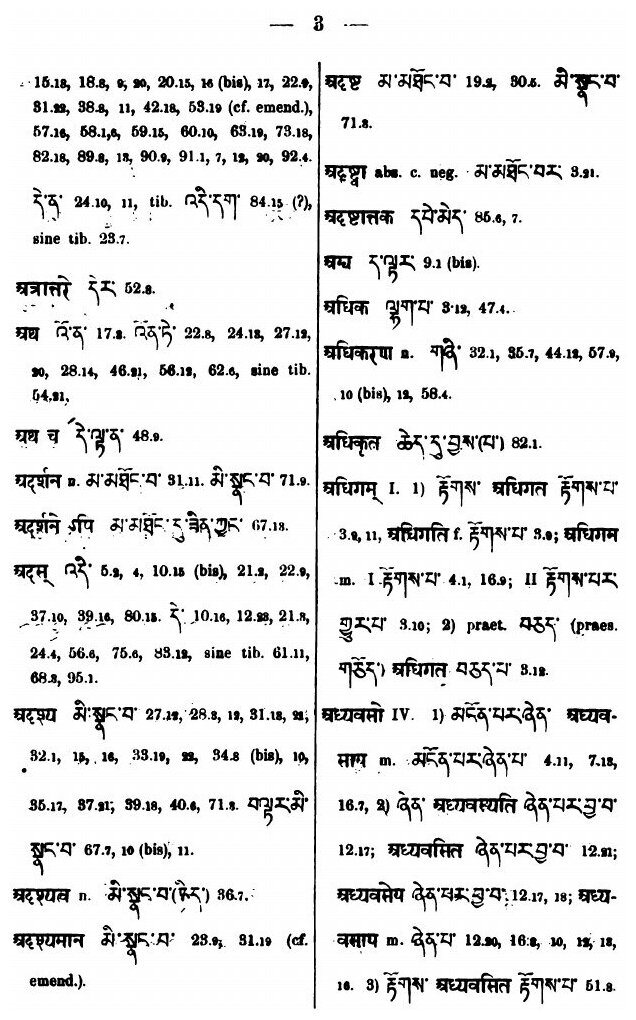 — 3 —
15.18, 18.8, 9, 20, 20.15, 16 (bis), 17, 22.9,
31.22, 38.8, 11, 42.18, 53.19 (cf. emend.),
57.16, 58.1,6, 59.15, 60.10, 63.19, 73.18,
82.18, 89.8, 13, 90.9, 91.1, 7, 12, 20, 92.4.
དེ་ནུ་ 24.10, 11, tib. འདི་དག་ 84.15 (?),
sine tib. 23.7.
अत्रान्तरे དེར་ 52.8.
अथ འོན་ 17.2. འོན་ཏེ་ 22.8, 24.12, 27.12,
20, 28.14, 46.21, 56.12, 62.6, sine tib.
54.21.
अथ च དེ་ལྟ་ན་ 48.9.
अदर्शन n. མ་མཐོང་བ་ 31.11. མི་སྣང་བ་ 71.9.
अदर्शने ऽपि མ་མཐོང་དུ་ཟིན་ཀྱང་ 67.18.
अदस् འདི་ 5.2, 4, 10.15 (bis), 21.2, 22.9,
37.10, 39.16, 80.15. དེ་ 10.16, 12.23, 21.8,
24.4, 56.6, 75.6, 83.12, sine tib. 61.11,
68.3, 95.1.
अदृश्य མི་སྣང་བ་ 27.12, 28.3, 12, 31.18, 22,
32.1, 15, 16, 33.19, 22, 34.8 (bis), 10,
35.17, 37.21; 39.18, 40.6, 71.3. བལྟར་མི་
སྣང་བ་ 67.7, 10 (bis), 11.
अदृश्यत्व n. མི་སྣང་བ་(ཉིད་) 36.7.
अदृश्यमान མི་སྣང་བ་ 23.9, 31.19 (cf.
emend.).
अदृष्ट མ་མཐོང་བ་ 19.2, 30.5. མི་སྣང་བ་
71.3.
अदृष्ट्वा abs. c. neg. མ་མཐོང་བར་ 3.21.
अदृष्टान्तक དཔེ་མེད་ 85.6, 7.
अद्य ད་ལྟར་ 9.1 (bis).
अधिक ལྷག་པ་ 3.12, 47.4.
अधिकरण n. གཞི་ 32.1, 35.7, 44.12, 57.9,
10 (bis), 12, 58.4.
अधिकृत ཆེད་དུ་བྱས་(པ་) 82.1.
अधिगम् I. 1) རྟོགས་ अधिगत རྟོགས་པ་
3.2, 11, अधिगति f. རྟོགས་པ་ 3.9; अधिगम
m. I རྟོགས་པ་ 4.1, 16.9; II རྟོགས་པར་
གྱུར་པ་ 3.10; 2) praet. བཅད་ (praes.
གཅོད་) अधिगत བཅད་པ་ 3.12.
अध्यवसो IV. 1) མངོན་པར་ཞེན་ अध्यव-
साय m. མངོན་པར་ཞེན་པ་ 4.11, 7.13,
16.7, 2) ཞེན་ अध्यवस्यति ཞེན་པར་བྱ་བ་
12.17; अध्यवसित ཞེན་པར་བྱ་བ་ 12.21;
अध्यवसेय ཞེན་པར་བྱ་བ་ 12.17, 18; अध्य-
वसाय m. ཞེན་པ་ 12.20, 16.3, 10, 12, 13,
16. 3) རྟོགས་ अध्यवसित རྟོགས་པ་ 51.8.